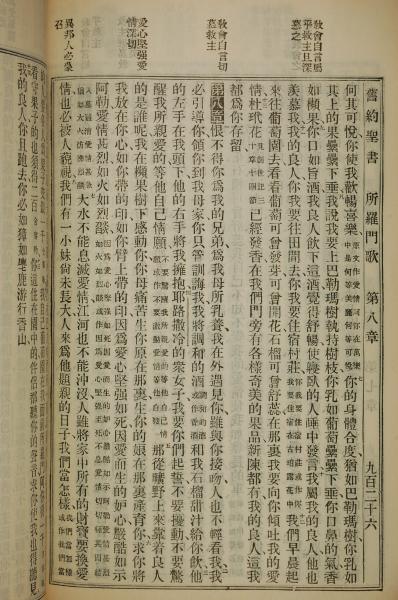 舊約聖書 所羅門歌 第八章 九百二十六
教會自言賜平救主且深慕之
教會自言切慕救主
愛心堅强愛情深切
異邦人必蒙召
何其可悅你使我歡暢喜樂你的身體合度猶如巴勒瑪樹你乳如
其上的果纍纍下垂我說我要上巴勒瑪樹執持樹枝你乳如葡萄纍纍下垂你口鼻的氣香
如蘋果你口如旨酒我良人飲下這酒覺得舒暢使寢臥的人睡中發言我屬我的良人他也
羨慕我我的良人你我要往田間去你我要住宿村莊我們早晨起
來往葡萄園去看看葡萄可曾發芽可曾開花石榴可曾舒蕊在那裏我要向你傾吐我的愛
情杜玳花見創世記三十章十四節已經發香在我們門旁有各樣奇美的果品新陳都有我的良人這我
都爲你存留
第八章恨不得你爲我的兄弟爲我母所乳養我在外遇見你雖與你接吻人也不輕看我我
必引導你領你到我母家你只管訓誨我我將調和的酒和我石榴甜汁給你飲他
的左手在我頭下他的右手將我擁抱耶路撒冷的衆女子我要你們起誓不要擾動不要驚
醒我所親愛的等他自己情願那從曠野上來靠着良人
的是誰呢我在蘋果樹下感動你你母痛苦生你原在那裏生你的娘在那裏產育你求你將
我放在你心如你帶的印如你臂上帶的印因爲愛心堅强如死因愛而生的妒心嚴酷如示
阿勒愛情甚烈如火如烈燄
大水不能息滅愛情江河也不能沖沒人雖將家中所有的財寶要換愛
情也必被人藐視我們有一小妹尚未長大人來爲他題親的日子我們當怎樣
看守果子的也須得二百你這住在園中的
我的良人你且跑去你必如獐如麈鹿游行香山